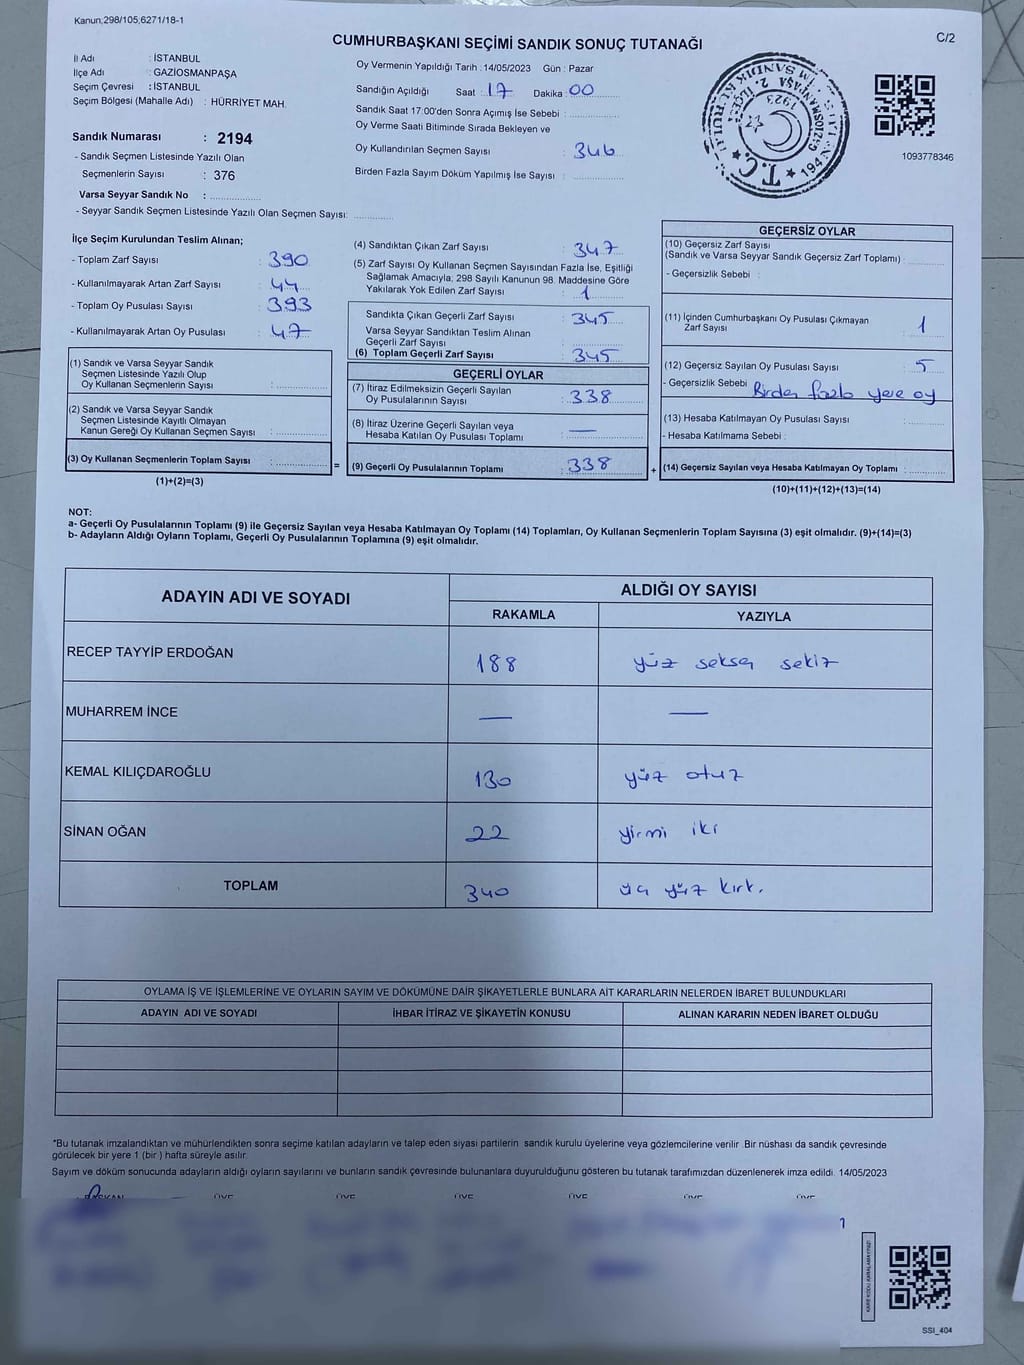 Kanun,298/105,6271/18-1
C/2
CUMHURBAŞKANI SEÇİMİ SANDIK SONUÇ TUTANAĞI
İl Adı : İSTANBUL
İlçe Adı : GAZİOSMANPAŞA
Seçim Çevresi : İSTANBUL
Seçim Bölgesi (Mahalle Adı) : HÜRRİYET MAH.
Sandık Numarası : 2194
- Sandık Seçmen Listesinde Yazılı Olan
Seçmenlerin Sayısı : 376
Varsa Seyyar Sandık No :
- Seyyar Sandık Seçmen Listesinde Yazılı Olan Seçmen Sayısı:
Oy Vermenin Yapıldığı Tarih :14/05/2023 Gün : Pazar
Sandığın Açıldığı Saat : 17 Dakika 00
Sandık Saat 17:00'den Sonra Açımış İse Sebebi :
Oy Verme Saati Bitiminde Sırada Bekleyen ve
Oy Kullandırılan Seçmen Sayısı : 346
Birden Fazla Sayım Döküm Yapılmış İse Sayısı :
1093778346
İlçe Seçim Kurulundan Teslim Alınan;
- Toplam Zarf Sayısı : 390
- Kullanılmayarak Artan Zarf Sayısı : 44
- Toplam Oy Pusulası Sayısı : 393
- Kullanılmayarak Artan Oy Pusulası : 47
(1) Sandık ve Varsa Seyyar Sandık
Seçmen Listesinde Yazılı Olup
Oy Kullanan Seçmenlerin Sayısı :
(2) Sandık ve Varsa Seyyar Sandık
Seçmen Listesinde Kayıtlı Olmayan
Kanun Gereği Oy Kullanan Seçmen Sayısı :
(3) Oy Kullanan Seçmenlerin Toplam Sayısı :
(1)+(2)=(3)
(4) Sandıktan Çıkan Zarf Sayısı : 347
(5) Zarf Sayısı Oy Kullanan Seçmen Sayısından Fazla İse, Eşitliği
Sağlamak Amacıyla; 298 Sayılı Kanunun 98. Maddesine Göre
Yakılarak Yok Edilen Zarf Sayısı : 1
Sandıkta Çıkan Geçerli Zarf Sayısı : 345
Varsa Seyyar Sandıktan Teslim Alınan
Geçerli Zarf Sayısı :
(6) Toplam Geçerli Zarf Sayısı : 345
GEÇERLİ OYLAR
(7) İtiraz Edilmeksizin Geçerli Sayılan
Oy Pusulalarının Sayısı : 338
(8) İtiraz Üzerine Geçerli Sayılan veya
Hesaba Katılan Oy Pusulası Toplamı : —
= (9) Geçerli Oy Pusulalarının Toplamı : 338 +
GEÇERSİZ OYLAR
(10) Geçersiz Zarf Sayısı
(Sandık ve Varsa Seyyar Sandık Geçersiz Zarf Toplamı) :
- Geçersizlik Sebebi :
(11) İçinden Cumhurbaşkanı Oy Pusulası Çıkmayan
Zarf Sayısı : 1
(12) Geçersiz Sayılan Oy Pusulası Sayısı : 5
- Geçersizlik Sebebi : Birden fazla yere oy
(13) Hesaba Katılmayan Oy Pusulası Sayısı :
- Hesaba Katılmama Sebebi :
(14) Geçersiz Sayılan veya Hesaba Katılmayan Oy Toplamı :
(10)+(11)+(12)+(13)=(14)
NOT:
a- Geçerli Oy Pusulalarının Toplamı (9) ile Geçersiz Sayılan veya Hesaba Katılmayan Oy Toplamı (14) Toplamları, Oy Kullanan Seçmenlerin Toplam Sayısına (3) eşit olmalıdır. (9)+(14)=(3)
b- Adayların Aldığı Oyların Toplamı, Geçerli Oy Pusulalarının Toplamına (9) eşit olmalıdır.
ADAYIN ADI VE SOYADI
ALDIĞI OY SAYISI
RAKAMLA YAZIYLA
RECEP TAYYİP ERDOĞAN 188 yüz seksen sekiz
MUHARREM İNCE — —
KEMAL KILIÇDAROĞLU 130 yüz otuz
SİNAN OĞAN 22 yirmi iki
TOPLAM 340 üç yüz kırk.
OYLAMA İŞ VE İŞLEMLERİNE VE OYLARIN SAYIM VE DÖKÜMÜNE DAİR ŞİKAYETLERLE BUNLARA AİT KARARLARIN NELERDEN İBARET BULUNDUKLARI
ADAYIN ADI VE SOYADI İHBAR İTİRAZ VE ŞİKAYETİN KONUSU ALINAN KARARIN NEDEN İBARET OLDUĞU
*Bu tutanak imzalandıktan ve mühürlendikten sonra seçime katılan adayların ve talep eden siyasi partilerin sandık kurulu üyelerine veya gözlemcilerine verilir Bir nüshası da sandık çevresinde
görülecek bir yere 1 (bir ) hafta süreyle asılır.
Sayım ve döküm sonucunda adayların aldığı oyların sayılarını ve bunların sandık çevresinde bulunanlara duyurulduğunu gösteren bu tutanak tarafımızdan düzenlenerek imza edildi. 14/05/2023
BAŞKAN ÜYE ÜYE ÜYE ÜYE ÜYE ÜYE
SSI_404